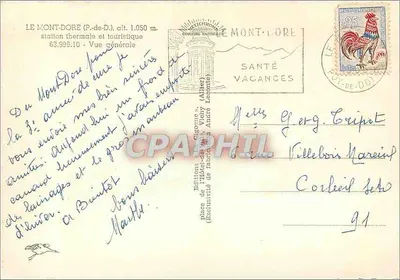 LE MONT-DORE (P.-de-D.), alt. 1.050 m.
station thermale et touristique
63.998.10 - Vue générale
Du Mont-Dore pour
la 3e année de cure je
vous envoie mes bien sincères
amitiés. Aujourd'hui un froid de
canard heureusement j'avais emporté
des lainages et le gros manteau
d'hiver. Bons baisers
à Bientôt
Marthe
LE MONT-DORE
SANTÉ
VACANCES
LE
PUY-DE-DOME
0,25
Melles Georg. Tripot
rue Villebois Mareuil
Corbeil
91
Cartophilie.com